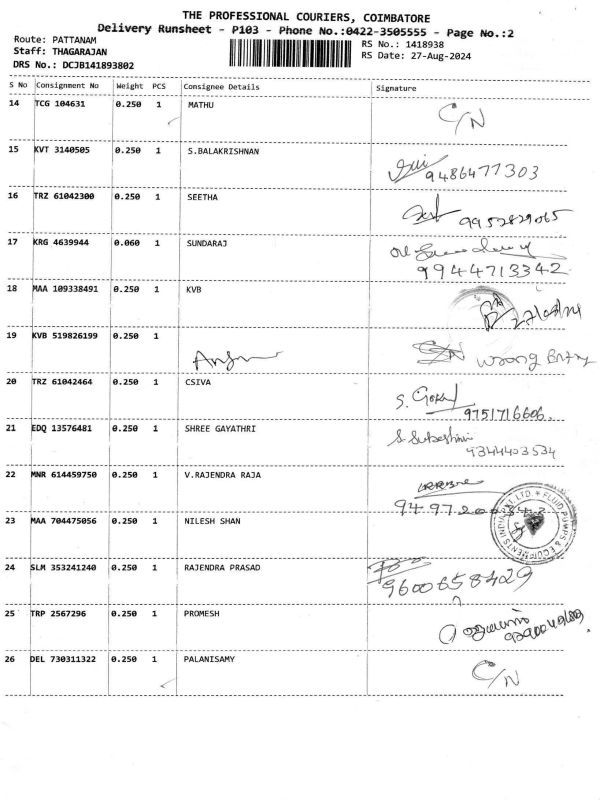 THE PROFESSIONAL COURIERS, COIMBATORE
Delivery Runsheet - P103 - Phone No.:0422-3505555 - Page No.:2
Route: PATTANAM
Staff: THAGARAJAN
DRS No.: DCJB141893802
RS No.: 1418938
RS Date: 27-Aug-2024
S No Consignment No Weight PCS Consignee Details Signature
14 TCG 104631 0.250 1 MATHU C/N
15 KVT 3140505 0.250 1 S.BALAKRISHNAN
9486477303
16 TRZ 61042300 0.250 1 SEETHA
9952829065
17 KRG 4639944 0.060 1 SUNDARAJ
9944713342
18 MAA 109338491 0.250 1 KVB
27/08/24
19 KVB 519826199 0.250 1
C/N wrong Entry
20 TRZ 61042464 0.250 1 CSIVA
S. Gokul
9751716606.
21 EDQ 13576481 0.250 1 SHREE GAYATHRI
9344403534
22 MNR 614459750 0.250 1 V.RAJENDRA RAJA
23 MAA 704475056 0.250 1 NILESH SHAN
FLUID PUMPS & EQUIPMENTS
24 SLM 353241240 0.250 1 RAJENDRA PRASAD
9600658429
25 TRP 2567296 0.250 1 PROMESH
26 DEL 730311322 0.250 1 PALANISAMY C/N